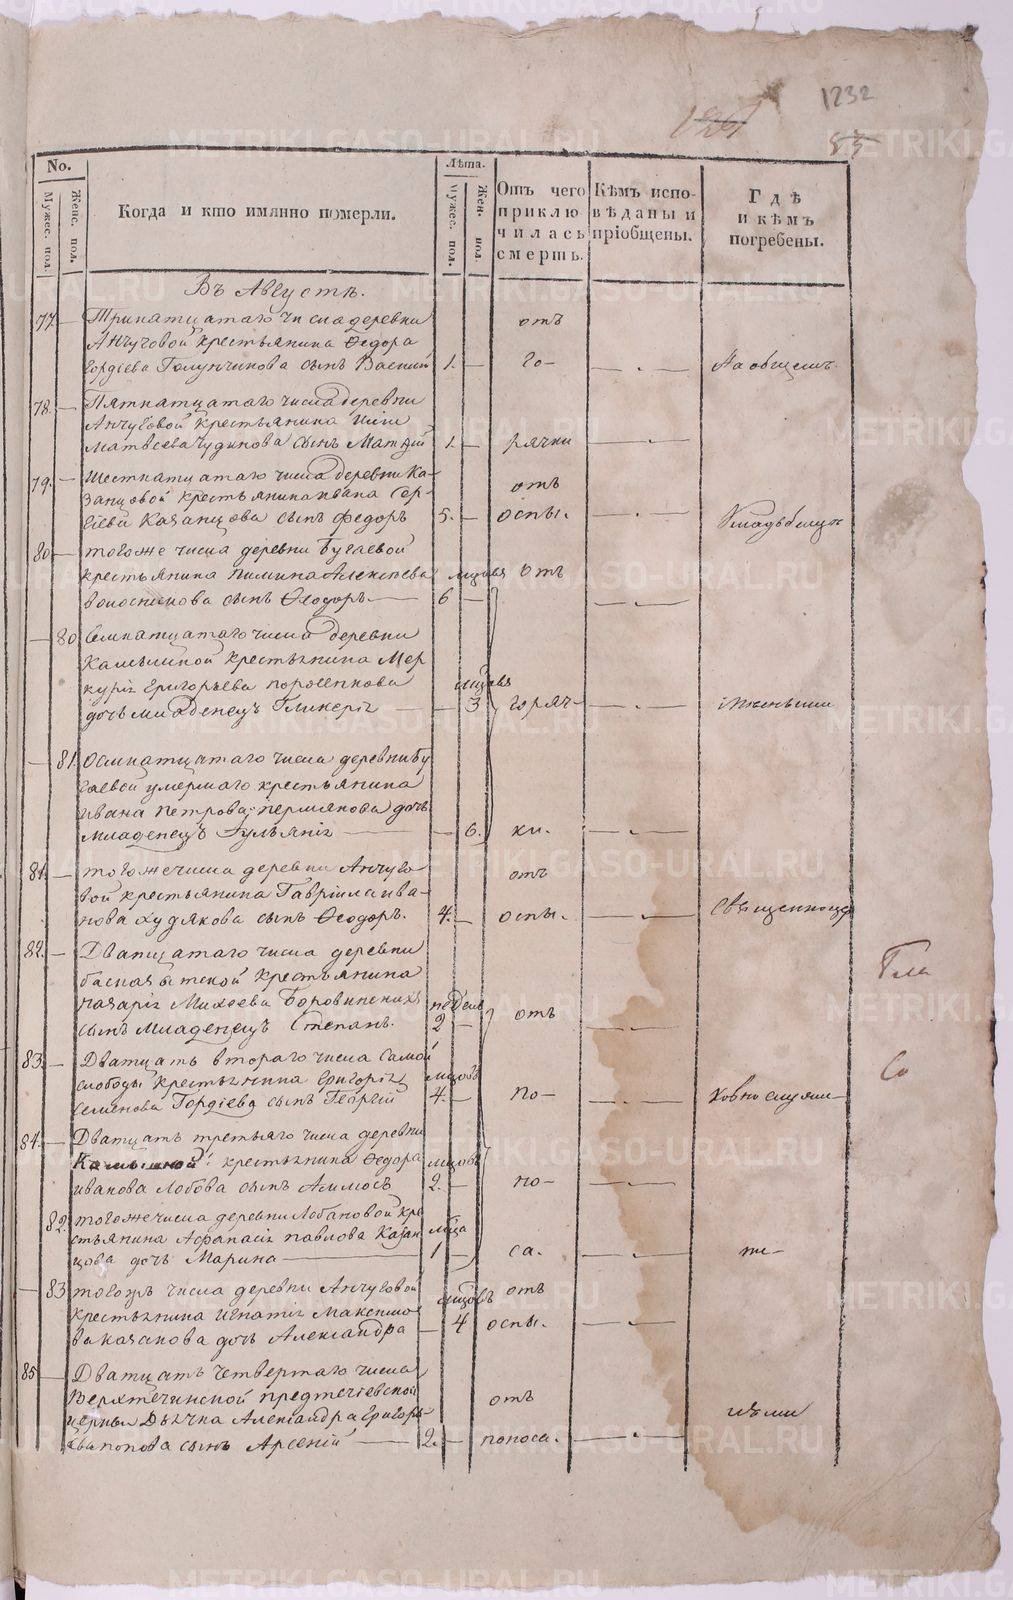 1232
85
No.
Мужес. пол.
Женс. пол.
Когда и кто имянно померли.
Лѣта.
Мужес. пол.
Жен. пол.
Отъ чего приклю чилась смерть.
Кѣмъ испо-вѣданы и пріобщены.
Гдѣ и кѣмъ погребены.
Въ Августѣ.
77 — Тринатцатаго числа деревни отъ
Анчуговой крестьянина Ѳедора
Гордіева Голунчикова сынъ Василій 1. — го- — На общемъ
78. — Пятнатцатаго числа деревни
Анчуговой крестьянина
Матвеева Чудинова сынъ Матвій 1. — рячки —
79. — Шестнатцатаго числа деревни Ка- отъ
занцовой крестьянина Ивана Сер-
гіева Казанцова сынъ Федоръ 5. — оспы. — Кладьбищѣ
80 — тогоже числа деревни Бугаевой
крестьянина Пимина Алексѣева мцовъ отъ
сынъ Ѳеодоръ — 6 — —
— 80 Семнатцатаго числа деревни
Камышной крестьянина Мер
курія Григорьева Поросенкова мцовъ
дочь младенецъ Гликерія — — 3 горяч- —
— 81. Осмнатцатаго числа деревни Бу
гаевой умершаго крестьянина
Ивана Петрова Пермякова дочь
младенецъ Іульянія — — 6. ки. —
81. — тогоже числа деревни Анчуго отъ
вой крестьянина Гавріила Ива-
нова Худякова сынъ Ѳеодоръ. 4. — оспы. — Священноцер
82. — Дватцатаго числа деревни
крестьянина
Назарія Михеева Боровинскихъ недель отъ
сынъ младенецъ Степанъ. 2 — —
83. — Дватцать втораго числа самой
слободы крестьянина Григорія мцовъ
Семенова Гордіева сынъ Георгій 4. — по- — ковнослужи-
84. — Дватцать третьяго числа деревни
Камышной крестьянина Ѳедора мцовъ
Иванова Лобова сынъ Аммосъ 2. — по- —
82. тогоже числа деревни Лобановой кре
стьянина Афанасія Павлова Казан мца
цова дочь Марина — 1 са. — те-
— 83 тогожъ числа деревни Анчуговой мцовъ отъ
крестьянина Игнатія Максимо
ва Казакова дочь Александра — 4 оспы. —
85 — Дватцать четвертаго числа
Верхтечинской Предтечіевской отъ
церкви Дьячка Александра Григорь- лями
ева Попова сынъ Арсеній — 2. — поноса. —
Гла
Со
METRIKI.GASO-URAL.RU